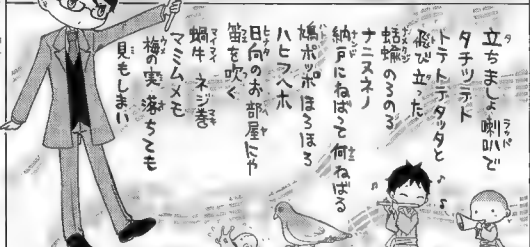 立ちましょ喇叭で
タチツテト
トテトテタッタと
飛び立った
蛞蝓のろのろ
ナニヌネノ
納戸にねばって何ねばる
鳩ポッポほろほろ
ハヒフヘホ
日向のお部屋にゃ
笛を吹く
蝸牛 ネジ巻
マミムメモ
梅の実 落ちても
見もしまい